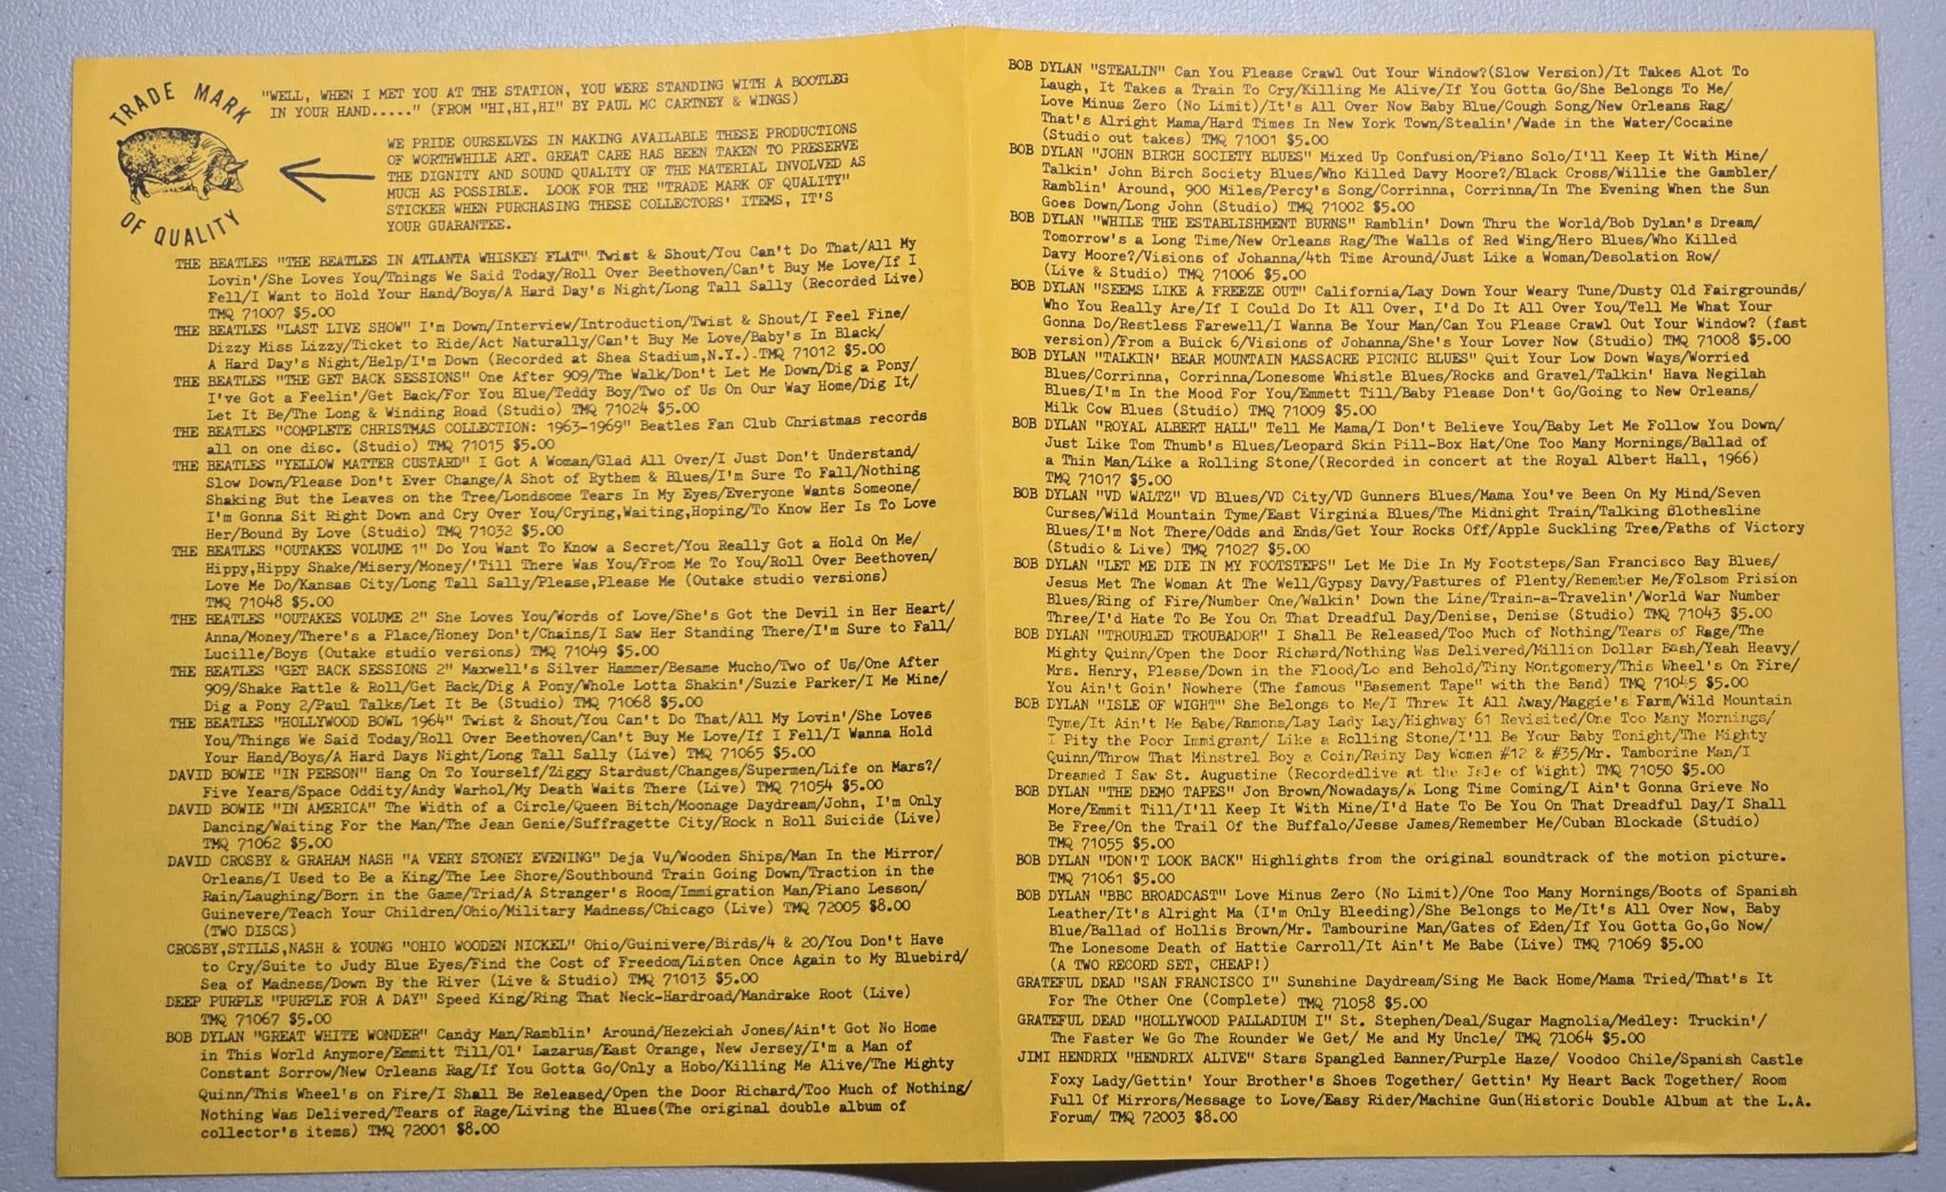 TRADE MARK
OF QUALITY
"WELL, WHEN I MET YOU AT THE STATION, YOU WERE STANDING WITH A BOOTLEG
IN YOUR HAND....." (FROM "HI,HI,HI" BY PAUL MC CARTNEY & WINGS)
WE PRIDE OURSELVES IN MAKING AVAILABLE THESE PRODUCTIONS
OF WORTHWHILE ART. GREAT CARE HAS BEEN TAKEN TO PRESERVE
THE DIGNITY AND SOUND QUALITY OF THE MATERIAL INVOLVED AS
MUCH AS POSSIBLE. LOOK FOR THE "TRADE MARK OF QUALITY"
STICKER WHEN PURCHASING THESE COLLECTORS' ITEMS, IT'S
YOUR GUARANTEE.
THE BEATLES "THE BEATLES IN ATLANTA WHISKEY FLAT" Twist & Shout/You Can't Do That/All My
Lovin'/She Loves You/Things We Said Today/Roll Over Beethoven/Can't Buy Me Love/If I
Fell/I Want to Hold Your Hand/Boys/A Hard Day's Night/Long Tall Sally (Recorded Live)
TMQ 71007 $5.00
THE BEATLES "LAST LIVE SHOW" I'm Down/Interview/Introduction/Twist & Shout/I Feel Fine/
Dizzy Miss Lizzy/Ticket to Ride/Act Naturally/Can't Buy Me Love/Baby's In Black/
A Hard Day's Night/Help/I'm Down (Recorded at Shea Stadium,N.Y.).TMQ 71012 $5.00
THE BEATLES "THE GET BACK SESSIONS" One After 909/The Walk/Don't Let Me Down/Dig a Pony/
I've Got a Feelin'/Get Back/For You Blue/Teddy Boy/Two of Us On Our Way Home/Dig It/
Let It Be/The Long & Winding Road (Studio) TMQ 71024 $5.00
THE BEATLES "COMPLETE CHRISTMAS COLLECTION: 1963-1969" Beatles Fan Club Christmas records
all on one disc. (Studio) TMQ 71015 $5.00
THE BEATLES "YELLOW MATTER CUSTARD" I Got A Woman/Glad All Over/I Just Don't Understand/
Slow Down/Please Don't Ever Change/A Shot of Rythem & Blues/I'm Sure To Fall/Nothing
Shaking But the Leaves on the Tree/Londsome Tears In My Eyes/Everyone Wants Someone/
I'm Gonna Sit Right Down and Cry Over You/Crying,Waiting,Hoping/To Know Her Is To Love
Her/Bound By Love (Studio) TMQ 71032 $5.00
THE BEATLES "OUTAKES VOLUME 1" Do You Want To Know a Secret/You Really Got a Hold On Me/
Hippy,Hippy Shake/Misery/Money/'Till There Was You/From Me To You/Roll Over Beethoven/
Love Me Do/Kansas City/Long Tall Sally/Please,Please Me (Outake studio versions)
TMQ 71048 $5.00
THE BEATLES "OUTAKES VOLUME 2" She Loves You/Words of Love/She's Got the Devil in Her Heart/
Anna/Money/There's a Place/Honey Don't/Chains/I Saw Her Standing There/I'm Sure to Fall/
Lucille/Boys (Outake studio versions) TMQ 71049 $5.00
THE BEATLES "GET BACK SESSIONS 2" Maxwell's Silver Hammer/Besame Mucho/Two of Us/One After
909/Shake Rattle & Roll/Get Back/Dig A Pony/Whole Lotta Shakin'/Suzie Parker/I Me Mine/
Dig a Pony 2/Paul Talks/Let It Be (Studio) TMQ 71068 $5.00
THE BEATLES "HOLLYWOOD BOWL 1964" Twist & Shout/You Can't Do That/All My Lovin'/She Loves
You/Things We Said Today/Roll Over Beethoven/Can't Buy Me Love/If I Fell/I Wanna Hold
Your Hand/Boys/A Hard Days Night/Long Tall Sally (Live) TMQ 71065 $5.00
DAVID BOWIE "IN PERSON" Hang On To Yourself/Ziggy Stardust/Changes/Supermen/Life on Mars?/
Five Years/Space Oddity/Andy Warhol/My Death Waits There (Live) TMQ 71054 $5.00
DAVID BOWIE "IN AMERICA" The Width of a Circle/Queen Bitch/Moonage Daydream/John, I'm Only
Dancing/Waiting For the Man/The Jean Genie/Suffragette City/Rock n Roll Suicide (Live)
TMQ 71062 $5.00
DAVID CROSBY & GRAHAM NASH "A VERY STONEY EVENING" Deja Vu/Wooden Ships/Man In the Mirror/
Orleans/I Used to Be a King/The Lee Shore/Southbound Train Going Down/Traction in the
Rain/Laughing/Born in the Game/Triad/A Stranger's Room/Immigration Man/Piano Lesson/
Guinevere/Teach Your Children/Ohio/Military Madness/Chicago (Live) TMQ 72005 $8.00
(TWO DISCS)
CROSBY,STILLS,NASH & YOUNG "OHIO WOODEN NICKEL" Ohio/Guinivere/Birds/4 & 20/You Don't Have
to Cry/Suite to Judy Blue Eyes/Find the Cost of Freedom/Listen Once Again to My Bluebird/
Sea of Madness/Down By the River (Live & Studio) TMQ 71013 $5.00
DEEP PURPLE "PURPLE FOR A DAY" Speed King/Ring That Neck-Hardroad/Mandrake Root (Live)
TMQ 71067 $5.00
BOB DYLAN "GREAT WHITE WONDER" Candy Man/Ramblin' Around/Hezekiah Jones/Ain't Got No Home
in This World Anymore/Emmitt Till/Ol' Lazarus/East Orange, New Jersey/I'm a Man of
Constant Sorrow/New Orleans Rag/If You Gotta Go/Only a Hobo/Killing Me Alive/The Mighty
Quinn/This Wheel's on Fire/I Shall Be Released/Open the Door Richard/Too Much of Nothing/
Nothing Was Delivered/Tears of Rage/Living the Blues(The original double album of
collector's items) TMQ 72001 $8.00
BOB DYLAN "STEALIN" Can You Please Crawl Out Your Window?(Slow Version)/It Takes Alot To
Laugh, It Takes a Train To Cry/Killing Me Alive/If You Gotta Go/She Belongs To Me/
Love Minus Zero (No Limit)/It's All Over Now Baby Blue/Cough Song/New Orleans Rag/
That's Alright Mama/Hard Times In New York Town/Stealin'/Wade in the Water/Cocaine
(Studio out takes) TMQ 71001 $5.00
BOB DYLAN "JOHN BIRCH SOCIETY BLUES" Mixed Up Confusion/Piano Solo/I'll Keep It With Mine/
Talkin' John Birch Society Blues/Who Killed Davy Moore?/Black Cross/Willie the Gambler/
Ramblin' Around, 900 Miles/Percy's Song/Corrinna, Corrinna/In The Evening When the Sun
Goes Down/Long John (Studio) TMQ 71002 $5.00
BOB DYLAN "WHILE THE ESTABLISHMENT BURNS" Ramblin' Down Thru the World/Bob Dylan's Dream/
Tomorrow's a Long Time/New Orleans Rag/The Walls of Red Wing/Hero Blues/Who Killed
Davy Moore?/Visions of Johanna/4th Time Around/Just Like a Woman/Desolation Row/
(Live & Studio) TMQ 71006 $5.00
BOB DYLAN "SEEMS LIKE A FREEZE OUT" California/Lay Down Your Weary Tune/Dusty Old Fairgrounds/
Who You Really Are/If I Could Do It All Over, I'd Do It All Over You/Tell Me What Your
Gonna Do/Restless Farewell/I Wanna Be Your Man/Can You Please Crawl Out Your Window? (fast
version)/From a Buick 6/Visions of Johanna/She's Your Lover Now (Studio) TMQ 71008 $5.00
BOB DYLAN "TALKIN' BEAR MOUNTAIN MASSACRE PICNIC BLUES" Quit Your Low Down Ways/Worried
Blues/Corrinna, Corrinna/Lonesome Whistle Blues/Rocks and Gravel/Talkin' Hava Negilah
Blues/I'm In the Mood For You/Emmett Till/Baby Please Don't Go/Going to New Orleans/
Milk Cow Blues (Studio) TMQ 71009 $5.00
BOB DYLAN "ROYAL ALBERT HALL" Tell Me Mama/I Don't Believe You/Baby Let Me Follow You Down/
Just Like Tom Thumb's Blues/Leopard Skin Pill-Box Hat/One Too Many Mornings/Ballad of
a Thin Man/Like a Rolling Stone/(Recorded in concert at the Royal Albert Hall, 1966)
TMQ 71017 $5.00
BOB DYLAN "VD WALTZ" VD Blues/VD City/VD Gunners Blues/Mama You've Been On My Mind/Seven
Curses/Wild Mountain Tyme/East Virginia Blues/The Midnight Train/Talking Clothesline
Blues/I'm Not There/Odds and Ends/Get Your Rocks Off/Apple Suckling Tree/Paths of Victory
(Studio & Live) TMQ 71027 $5.00
BOB DYLAN "LET ME DIE IN MY FOOTSTEPS" Let Me Die In My Footsteps/San Francisco Bay Blues/
Jesus Met The Woman At The Well/Gypsy Davy/Pastures of Plenty/Remember Me/Folsom Prision
Blues/Ring of Fire/Number One/Walkin' Down the Line/Train-a-Travelin'/World War Number
Three/I'd Hate To Be You On That Dreadful Day/Denise, Denise (Studio) TMQ 71043 $5.00
BOB DYLAN "TROUBLED TROUBADOR" I Shall Be Released/Too Much of Nothing/Tears of Rage/The
Mighty Quinn/Open the Door Richard/Nothing Was Delivered/Million Dollar Bash/Yeah Heavy/
Mrs. Henry, Please/Down in the Flood/Lo and Behold/Tiny Montgomery/This Wheel's On Fire/
You Ain't Goin' Nowhere (The famous "Basement Tape" with the Band) TMQ 71045 $5.00
BOB DYLAN "ISLE OF WIGHT" She Belongs to Me/I Threw It All Away/Maggie's Farm/Wild Mountain
Tyme/It Ain't Me Babe/Ramona/Lay Lady Lay/Highway 61 Revisited/One Too Many Mornings/
I Pity the Poor Immigrant/ Like a Rolling Stone/I'll Be Your Baby Tonight/The Mighty
Quinn/Throw That Minstrel Boy a Coin/Rainy Day Women #12 & #35/Mr. Tamborine Man/I
Dreamed I Saw St. Augustine (Recordedlive at the Isle of Wight) TMQ 71050 $5.00
BOB DYLAN "THE DEMO TAPES" Jon Brown/Nowadays/A Long Time Coming/I Ain't Gonna Grieve No
More/Emmit Till/I'll Keep It With Mine/I'd Hate To Be You On That Dreadful Day/I Shall
Be Free/On the Trail Of the Buffalo/Jesse James/Remember Me/Cuban Blockade (Studio)
TMQ 71055 $5.00
BOB DYLAN "DON'T LOOK BACK" Highlights from the original soundtrack of the motion picture.
TMQ 71061 $5.00
BOB DYLAN "BBC BROADCAST" Love Minus Zero (No Limit)/One Too Many Mornings/Boots of Spanish
Leather/It's Alright Ma (I'm Only Bleeding)/She Belongs to Me/It's All Over Now, Baby
Blue/Ballad of Hollis Brown/Mr. Tambourine Man/Gates of Eden/If You Gotta Go,Go Now/
The Lonesome Death of Hattie Carroll/It Ain't Me Babe (Live) TMQ 71069 $5.00
(A TWO RECORD SET, CHEAP!)
GRATEFUL DEAD "SAN FRANCISCO I" Sunshine Daydream/Sing Me Back Home/Mama Tried/That's It
For The Other One (Complete) TMQ 71058 $5.00
GRATEFUL DEAD "HOLLYWOOD PALLADIUM I" St. Stephen/Deal/Sugar Magnolia/Medley: Truckin'/
The Faster We Go The Rounder We Get/ Me and My Uncle/ TMQ 71064 $5.00
JIMI HENDRIX "HENDRIX ALIVE" Stars Spangled Banner/Purple Haze/ Voodoo Chile/Spanish Castle
Foxy Lady/Gettin' Your Brother's Shoes Together/ Gettin' My Heart Back Together/ Room
Full Of Mirrors/Message to Love/Easy Rider/Machine Gun(Historic Double Album at the L.A.
Forum/ TMQ 72003 $8.00